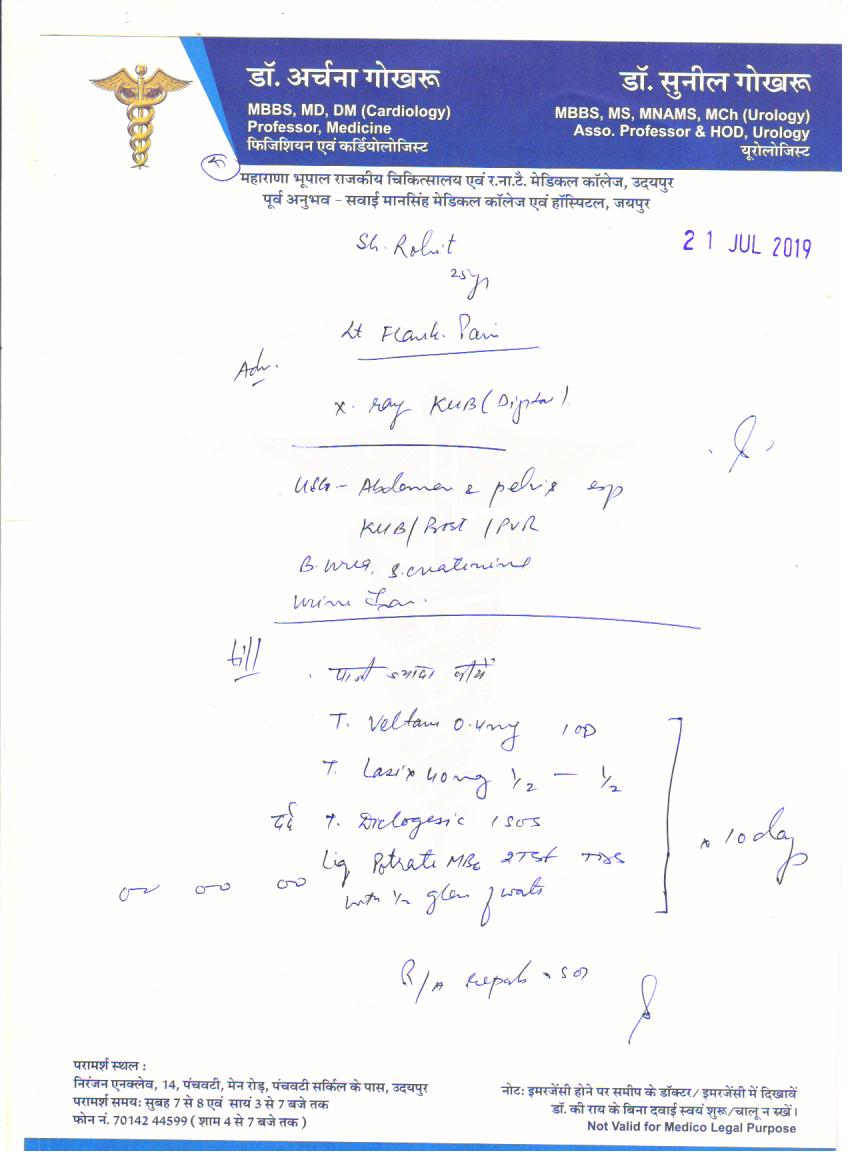 डॉ. अर्चना गोखरू
MBBS, MD, DM (Cardiology)
Professor, Medicine
फिजिशियन एवं कर्डियोलोजिस्ट
डॉ. सुनील गोखरू
MBBS, MS, MNAMS, MCh (Urology)
Asso. Professor & HOD, Urology
यूरोलोजिस्ट
महाराणा भूपाल राजकीय चिकित्सालय एवं र.ना.टै. मेडिकल कॉलेज, उदयपुर
पूर्व अनुभव - सवाई मानसिंह मेडिकल कॉलेज एवं हॉस्पिटल, जयपुर
21 JUL 2019
Sh. Rohit
25 yr
Lt Flank Pain
Adv.
X. ray KUB (Digital).
USG - Abdomen & pelvis esp
KUB / Prost / PVR
B. urea, S. creatinine
Urine
पानी ज्यादा पीयें
T. Veltam 0.4mg 1 OD
T. Lasix 40mg 1/2 — 1/2
दर्द T. Diclogesic 1 SOS
Liq Potrate MB6 2TSF TDS
with 1/2 glass of water
x 10 day
R/A reports SOS
परामर्श स्थल :
निरंजन एनक्लेव, 14, पंचवटी, मेन रोड़, पंचवटी सर्किल के पास, उदयपुर
परामर्श समय: सुबह 7 से 8 एवं सायं 3 से 7 बजे तक
फोन नं. 70142 44599 ( शाम 4 से 7 बजे तक )
नोट: इमरजेंसी होने पर समीप के डॉक्टर/ इमरजेंसी में दिखावें
डॉ. की राय के बिना दवाई स्वयं शुरू/चालू न रखें।
Not Valid for Medico Legal Purpose